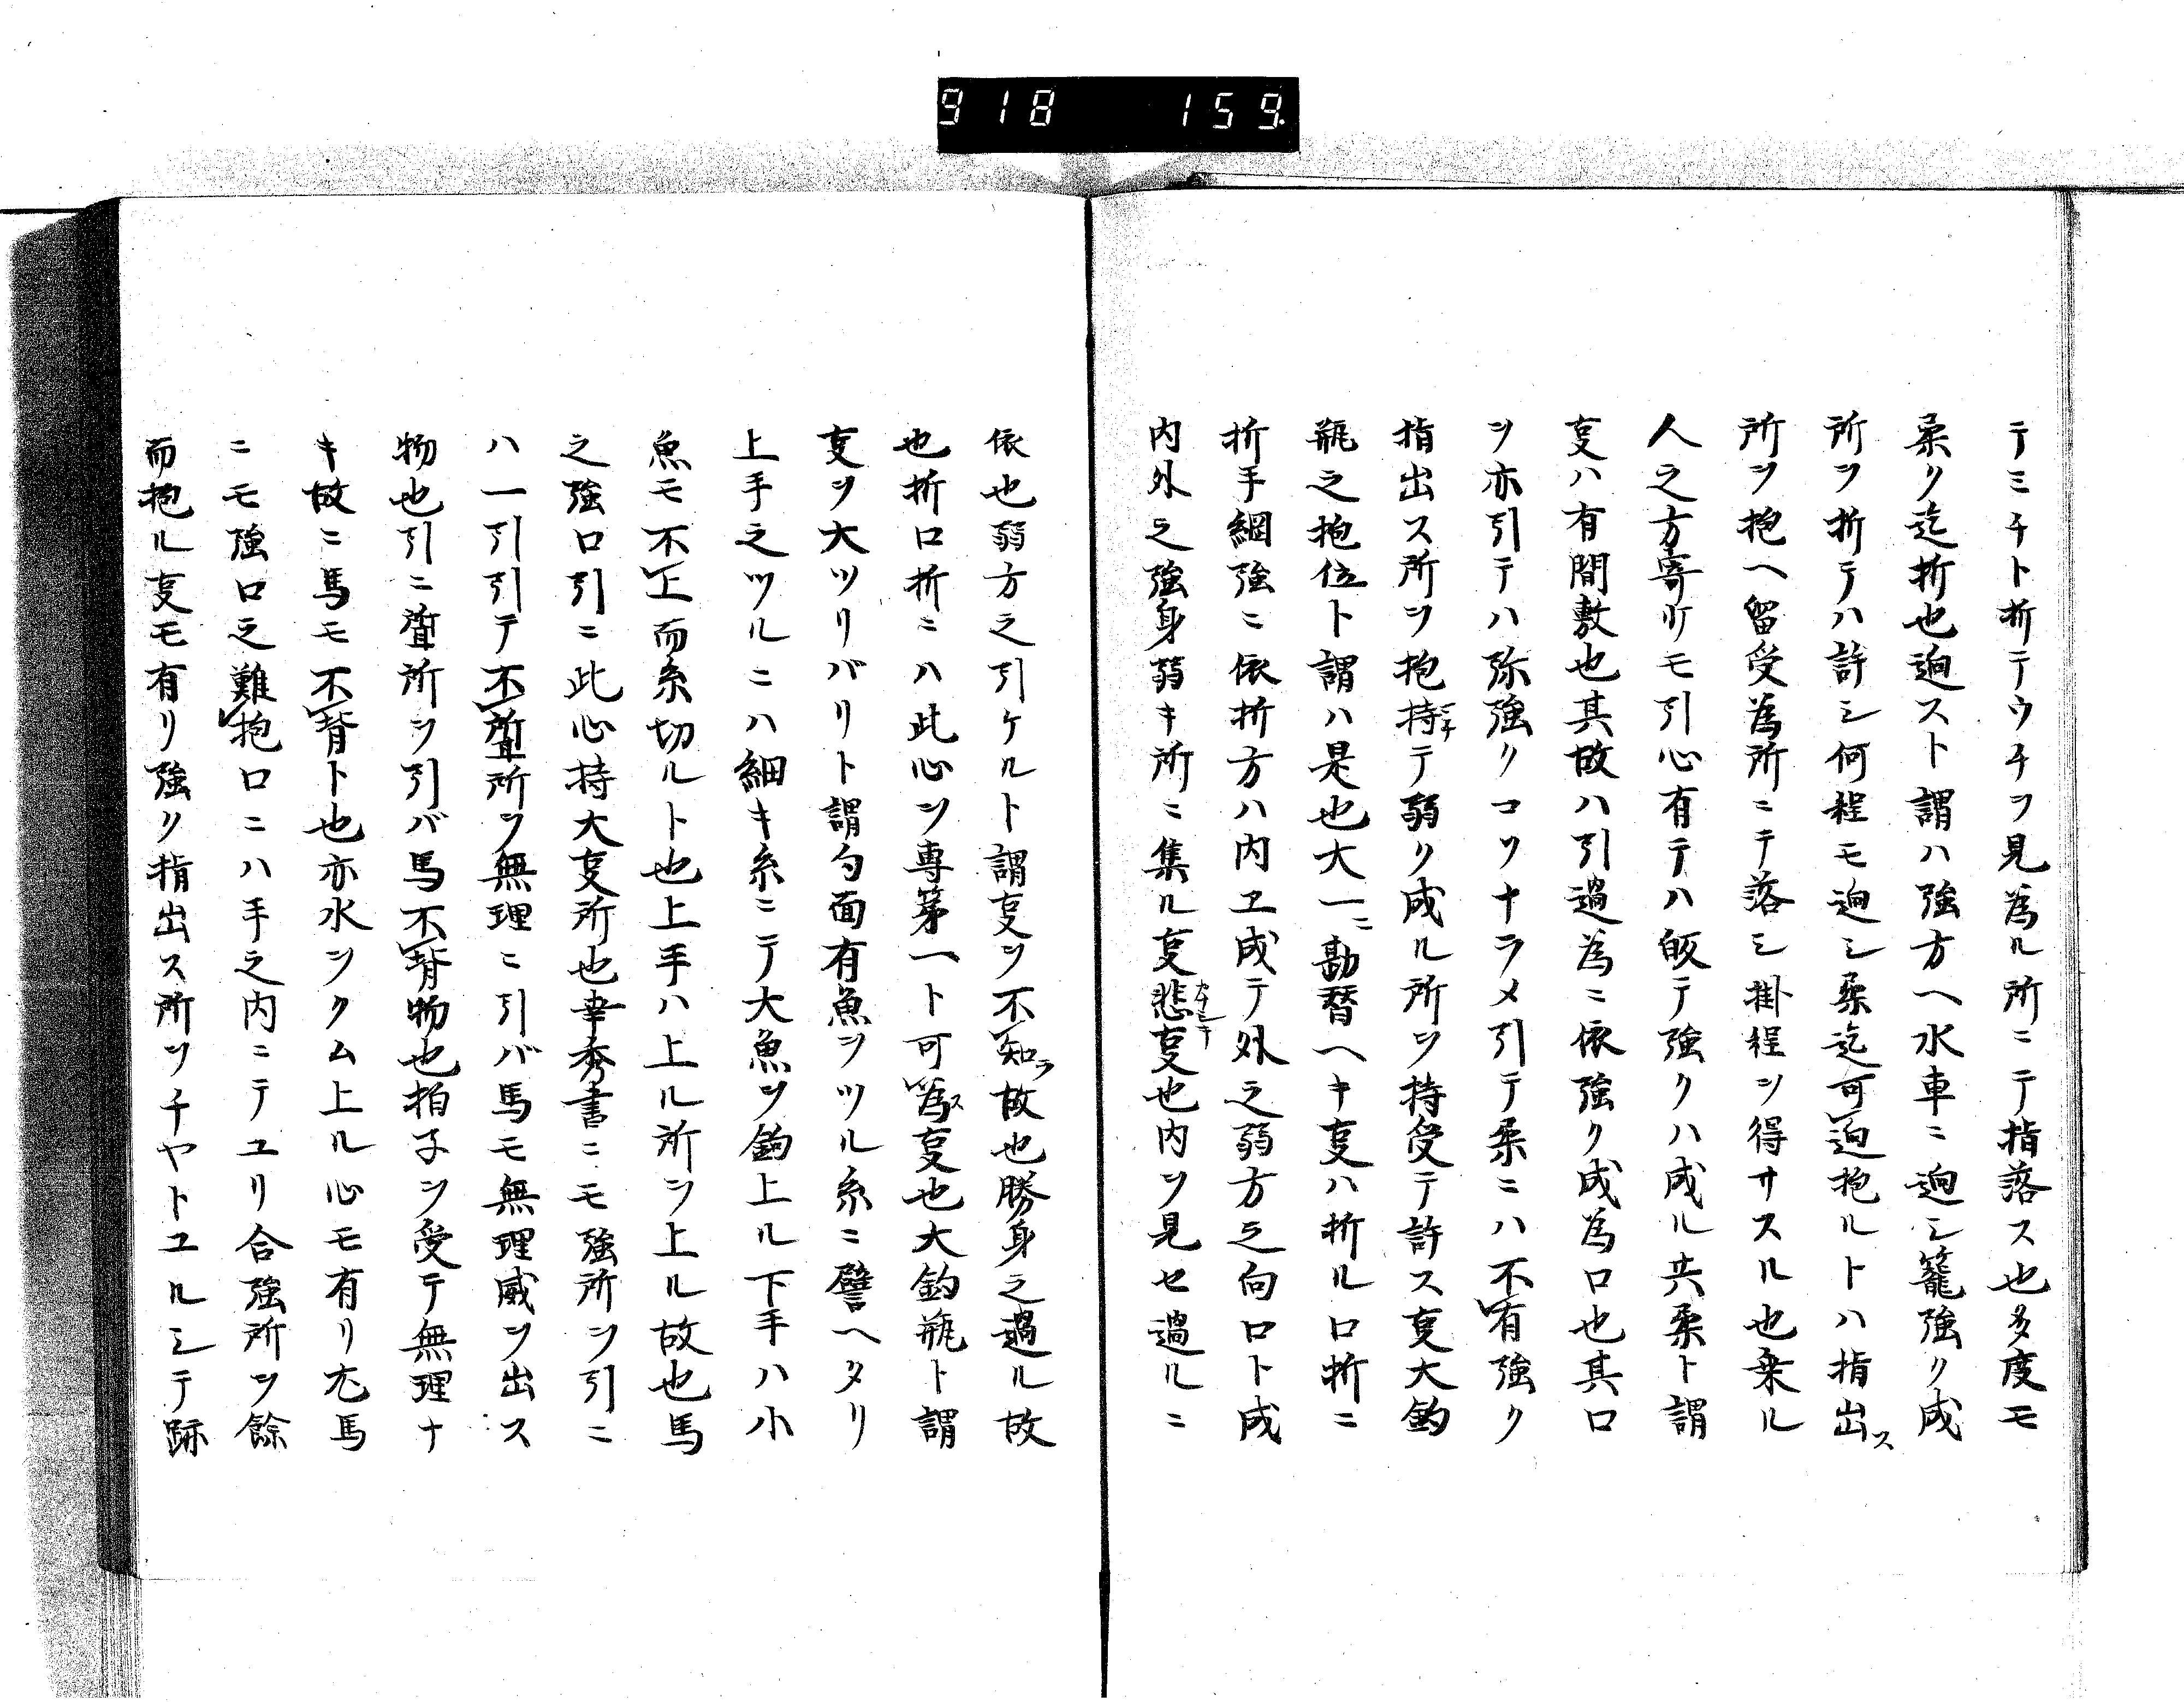 918 159
テミチト折テウチヲ見為ル所ニテ指落ス也多度モ
柔ク迄折也廻スト謂ハ強方ヘ水車ニ廻シ籠強ク成
所ヲ折テハ許シ何程モ廻シ柔迄可廻抱ルトハ指出ス
所ヲ抱ヘ留受為所ニテ落シ掛程ヲ得サスル也乗ル
人之方寄リモ引心有テハ皈テ強クハ成ル共柔ト謂
叓ハ有間敷也其故ハ引過為ニ依強ク成為口也其口
ヲ亦引テハ弥強クコソナラメ引テ柔ニハ不有強ク
指出ス所ヲ抱持テ弱ク成ル所ヲ持受テ許ス叓大釣
瓶之抱位ト謂ハ是也大一ニ勘暦ヘキ叓ハ折ル口折ニ
折手綱強ニ依折方ハ内エ成テ外之弱方之向口ト成
内外之強身弱キ所ニ集ル叓悲叓也内ヲ見セ過ルニ
依也弱方之引ケルト謂叓ヲ不知ラ故也勝身之過ル故
也折口折ニハ此心ヲ専第一ト可為ス叓也大釣瓶ト謂
叓ヲ大ツリバリト謂勾面有魚ヲツル糸ニ譬ヘタリ
上手之ツルニハ細キ糸ニテ大魚ヲ釣上ル下手ハ小
魚モ不上而糸切ルト也上手ハ上ル所ヲ上ル故也馬
之強口引ニ此心持大叓所也幸秀書ニモ強所ヲ引ニ
ハ一引引テ不聳所ヲ無理ニ引バ馬モ無理威ヲ出ス
物也引ニ聳所ヲ引バ馬不背物也拍子ヲ受テ無理ナ
キ故ニ馬モ不背ト也亦水ヲクム上ル心モ有リ尤馬
ニモ強口之難抱口ニハ手之内ニテユリ合強所ヲ餘
而抱ル叓モ有リ強ク指出ス所ヲチヤトユルシテ跡